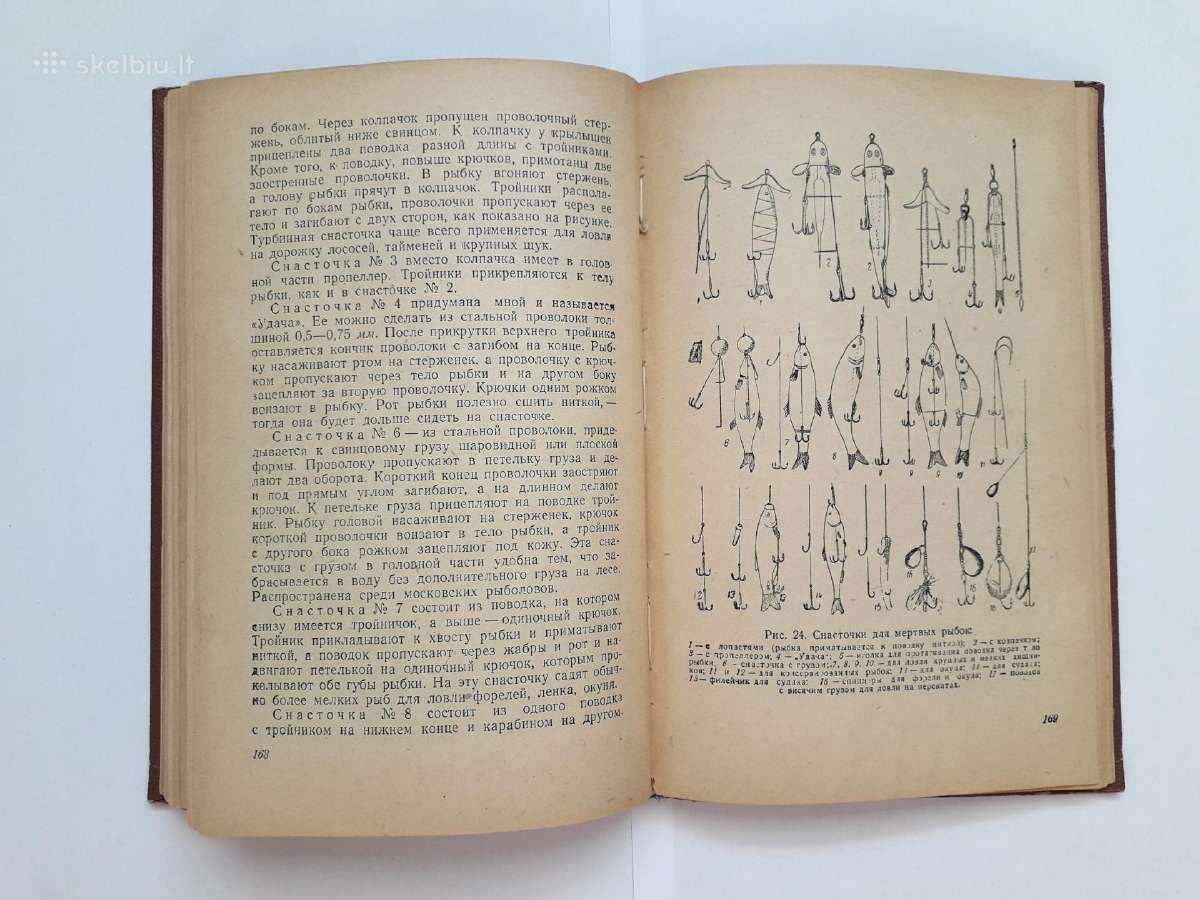 skelbiu.lt
по бокам. Через колпачок пропущен проволочный стер-
жень, облитый ниже свинцом. К колпачку у крылышек
прицеплены два поводка разной длины с тройниками.
Кроме того, к поводку, повыше крючков, примотаны две
заостренные проволочки. В рыбку вгоняют стержень,
а голову рыбки прячут в колпачок. Тройники распола-
гают по бокам рыбки, проволочки пропускают через ее
тело и загибают с двух сторон, как показано на рисунке.
Турбинная снасточка чаще всего применяется для ловли
на дорожку лососей, тайменей и крупных щук.
Снасточка № 3 вместо колпачка имеет в голов-
ной части пропеллер. Тройники прикрепляются к телу
рыбки, как и в снасточке № 2.
Снасточка № 4 придумана мной и называется
«Удача». Ее можно сделать из стальной проволоки тол-
щиной 0,5—0,75 мм. После прикрутки верхнего тройника
оставляется кончик проволоки с загибом на конце. Рыб-
ку насаживают ртом на стерженек, а проволочку с крюч-
ком пропускают через тело рыбки и на другом боку
зацепляют за вторую проволочку. Крючки одним рожком
вонзают в рыбку. Рот рыбки полезно сшить ниткой,—
тогда она будет дольше сидеть на снасточке.
Снасточка № 6 — из стальной проволоки, приде-
лывается к свинцовому грузу шаровидной или плоской
формы. Проволоку пропускают в петельку груза и де-
лают два оборота. Короткий конец проволочки заостряют
и под прямым углом загибают, а на длинном делают
крючок. К петельке груза прицепляют на поводке трой-
ник. Рыбку головой насаживают на стерженек, крючок
короткой проволочки вонзают в тело рыбки, а тройник
с другого бока рожком зацепляют под кожу. Эта сна-
сточка с грузом в головной части удобна тем, что за-
брасывается в воду без дополнительного груза на лесе.
Распространена среди московских рыболовов.
Снасточка № 7 состоит из поводка, на котором
снизу имеется тройничок, а выше — одиночный крючок.
Тройник прикладывают к хвосту рыбки и приматывают
ниткой, а поводок пропускают через жабры и рот и на-
двигают петелькой на одиночный крючок, которым про-
калывают обе губы рыбки. На эту снасточку садят обыч-
но более мелких рыб для ловли форелей, ленка, окуня.
Снасточка № 8 состоит из одного поводка
с тройником на нижнем конце и карабином на другом-
168
Рис. 24. Снасточки для мертвых рыбок:
1 — с лопастями (рыбка приматывается к поводку нитками); 2 — с колпачком;
3 — с пропеллером; 4 — „Удача“; 5 — иголка для протягивания поводка через тело
рыбки, 6 — снасточка с грузом; 7, 8, 9, 10 — для ловли крупных и мелких хищни-
ков; 11 и 12 — для консервированных рыбок; 13 — для окуня; 14 — для судака;
15 — филейчик для судака; 16 — спиннеры для форели и окуня; 17 — поводок
с висячим грузом для ловли на перекатах.
169